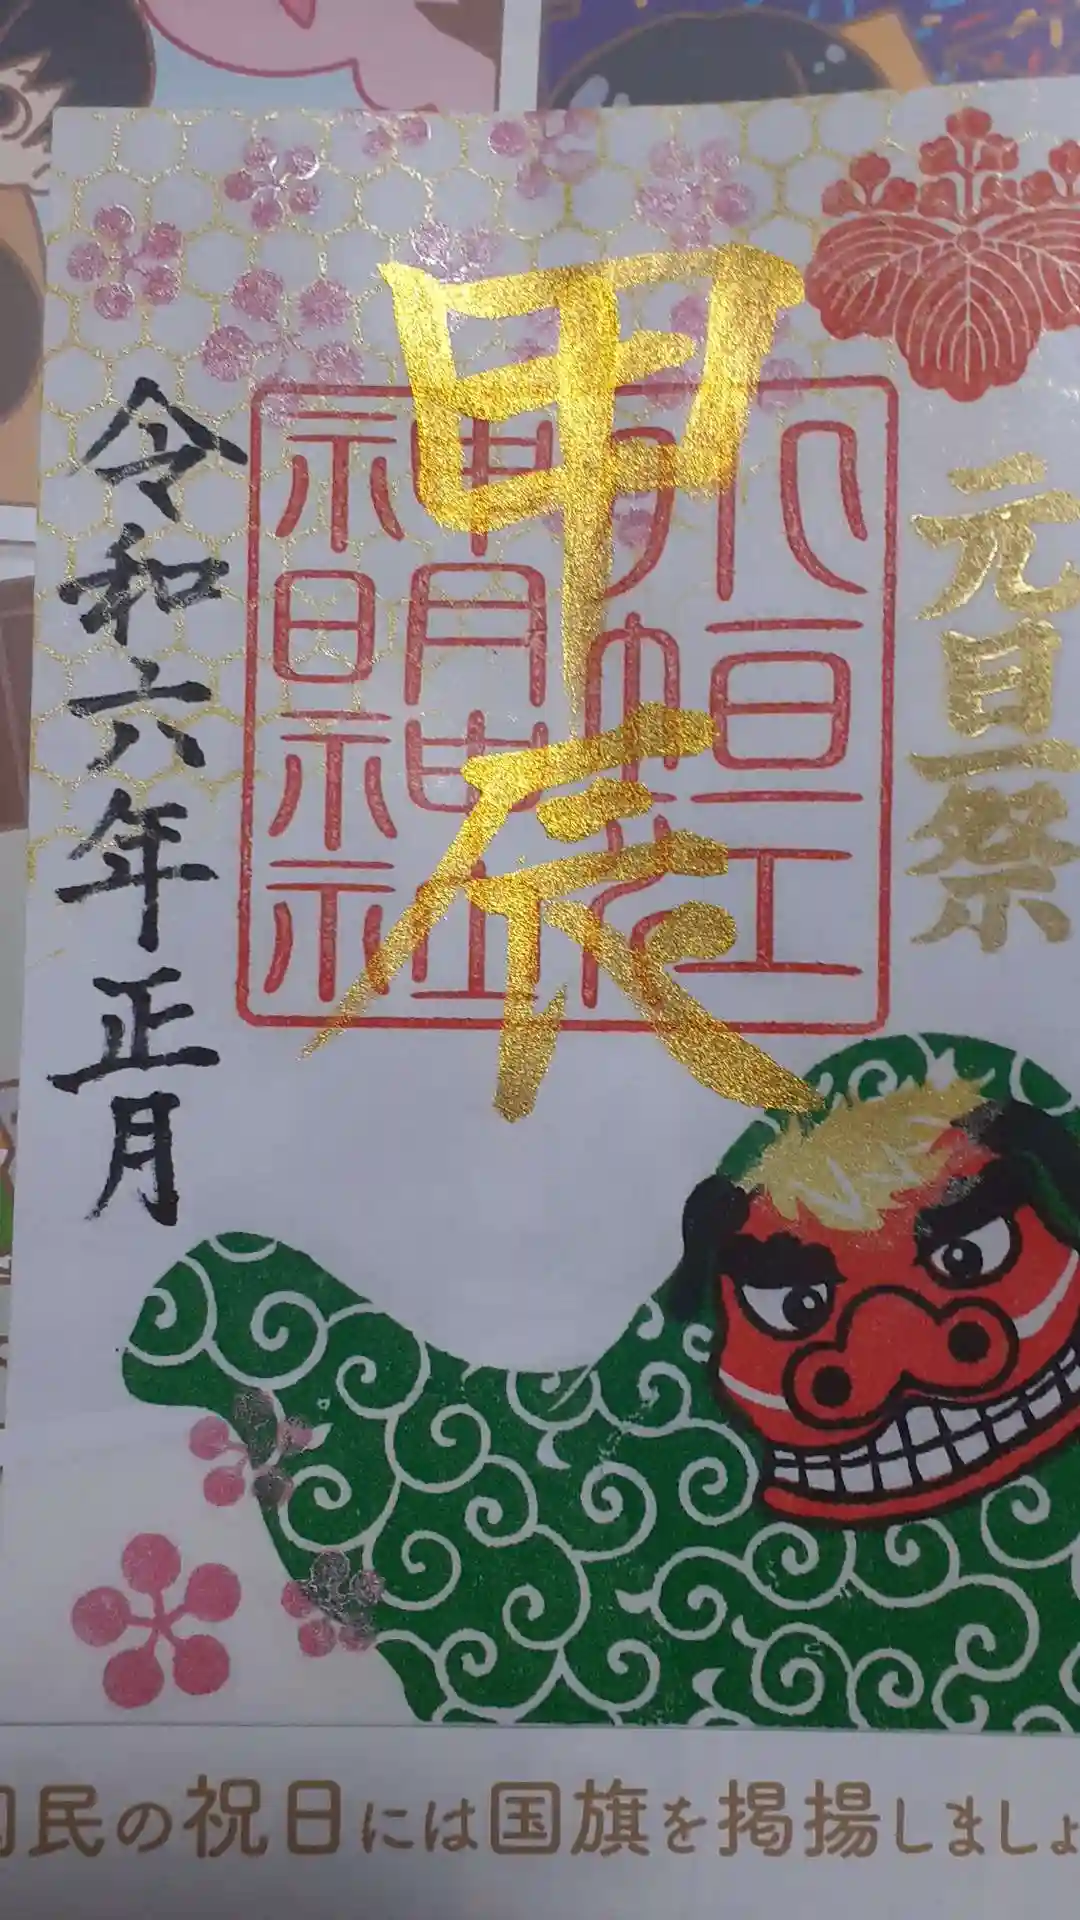 元旦祭
甲辰
神明神社
令和六年正月
民の祝日には国旗を掲揚しましょ